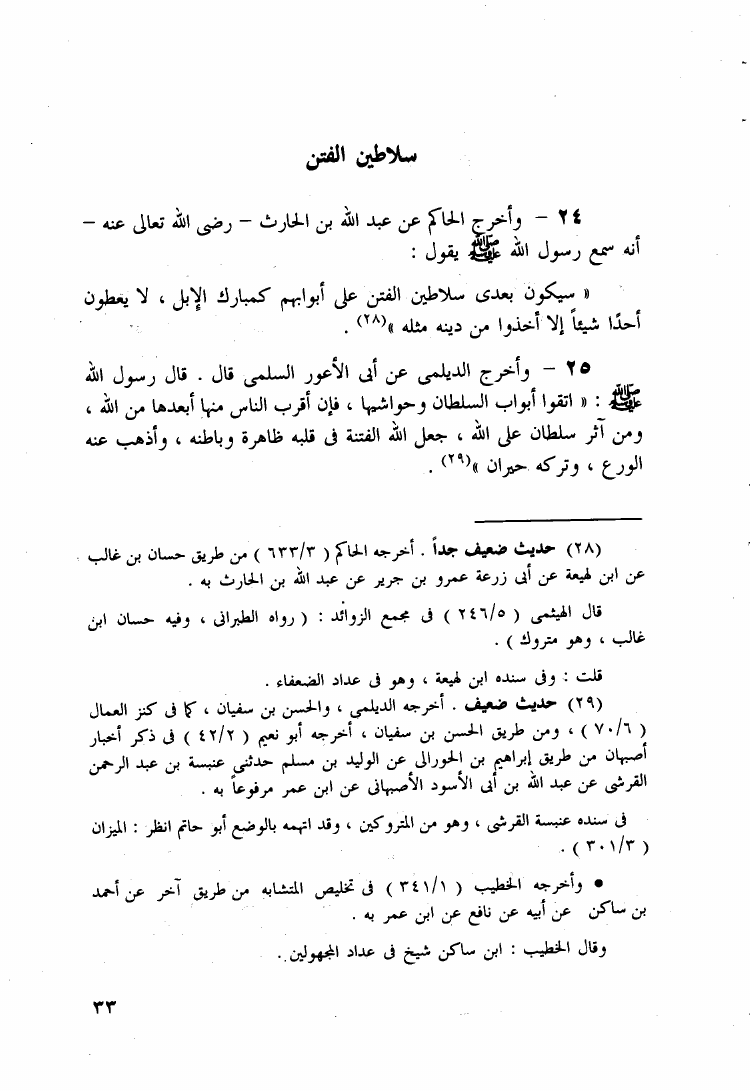 سلاطين الفتن
٢٤ – وأخرج الحاكم عن عبد الله بن الحارث – رضى الله تعالى عنه –
أنه سمع رسول الله ﷺ يقول :
« سيكون بعدى سلاطين الفتن على أبوابهم كمبارك الإبل ، لا يعطون
أحدًا شيئاً إلا أخذوا من دينه مثله »(٢٨) .
٢٥ – وأخرج الديلمى عن أبى الأعور السلمى قال . قال رسول الله
ﷺ : « اتقوا أبواب السلطان وحواشيها ، فإن أقرب الناس منها أبعدها من الله ،
ومن آثر سلطان على الله ، جعل الله الفتنة فى قلبه ظاهرة وباطنه ، وأذهب عنه
الورع ، وتركه حيران »(٢٩) .
(٢٨) حديث ضعيف جداً . أخرجه الحاكم ( ٦٣٣/٣ ) من طريق حسان بن غالب
عن ابن لهيعة عن أبى زرعة عمرو بن جرير عن عبد الله بن الحارث به .
قال الهيثمى ( ٢٤٦/٥ ) فى مجمع الزوائد : ( رواه الطبرانى ، وفيه حسان ابن
غالب ، وهو متروك ) .
قلت : وفى سنده ابن لهيعة ، وهو فى عداد الضعفاء .
(٢٩) حديث ضعيف . أخرجه الديلمى ، والحسن بن سفيان ، كما فى كنز العمال
( ٧٠/٦ ) ، ومن طريق الحسن بن سفيان ، أخرجه أبو نعيم ( ٤٢/٢ ) فى ذكر أخبار
أصبهان من طريق إبراهيم بن الحورالى عن الوليد بن مسلم حدثنى عنبسة بن عبد الرحمن
القرشى عن عبد الله بن أبى الأسود الأصبهانى عن ابن عمر مرفوعاً به .
فى سنده عنبسة القرشى ، وهو من المتروكين ، وقد اتهمه بالوضع أبو حاتم انظر : الميزان
( ٣٠١/٣ ) .
• وأخرجه الخطيب ( ٣٤١/١ ) فى تخليص المتشابه من طريق آخر عن أحمد
بن ساكن عن أبيه عن نافع عن ابن عمر به .
وقال الخطيب : ابن ساكن شيخ فى عداد المجهولين .
٣٣